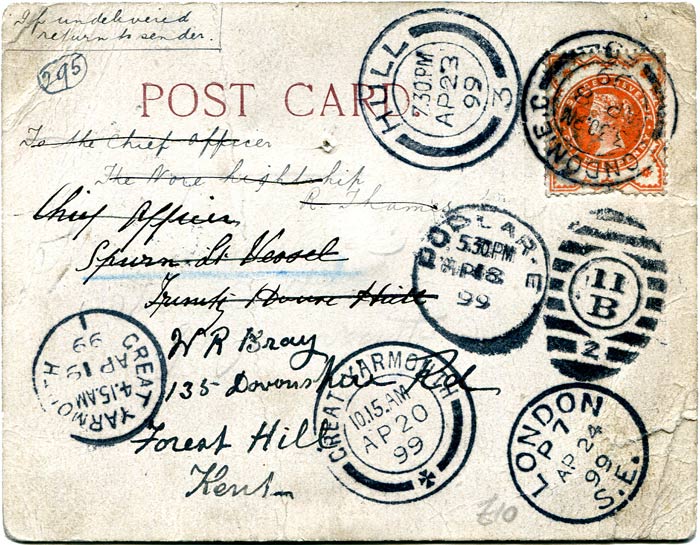 If undelivered
return to sender.
295
POST CARD
To the Chief Officer
The Nore Lightship
R. Thames
Chief Officer
Spurn Lt Vessel
Trinity House Hull
W R Bray
135 Devonshire Rd
Forest Hill
Kent
HULL
7.30.PM
AP 23
99
3
LONDON E.C
POPLAR.E
5.30.PM
AP 18
99
11
B
2
GREAT YARMOUTH
4.15.AM
AP 19
99
GREAT YARMOUTH
10.15.AM
AP 20
99
LONDON S.E.
P 7
AP 24
99
£10